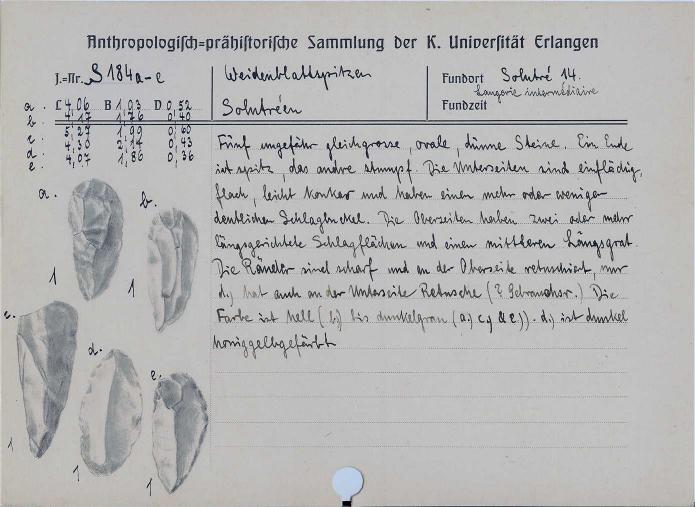 Anthropologisch=prähistorische Sammlung der K. Universität Erlangen
J.=Nr. S 184a-e
Weidenblattspitzen
Solutréen
Fundort Solutré 14.
Laugerie intermédiaire
Fundzeit
a. L 4,06 B 1,03 D 0,52
b. 4,17 1,76 0,40
c. 5,27 1,99 0,60
d. 4,30 2,14 0,43
e. 4,07 1,86 0,36
Fünf ungefähr gleichgrosse, ovale, dünne Steine. Ein Ende
ist spitz, das andre stumpf. Die Unterseiten sind einflächig,
flach, leicht konkav und haben einen mehr oder weniger
deutlichen Schlagbuckel. Die Oberseiten haben zwei oder mehr
längsgerichtete Schlagflächen und einen mittleren Längsgrat.
Die Ränder sind scharf und an der Oberseite retuschiert, nur
d.) hat auch an der Unterseite Retusche (? Gebrauchsr.) Die
Farbe ist hell (b.) bis dunkelgrau (a.) c.) & e.)). d.) ist dunkel
honiggelbgefärbt
a.
1
b.
1
c.
1
d.
1
e.
1